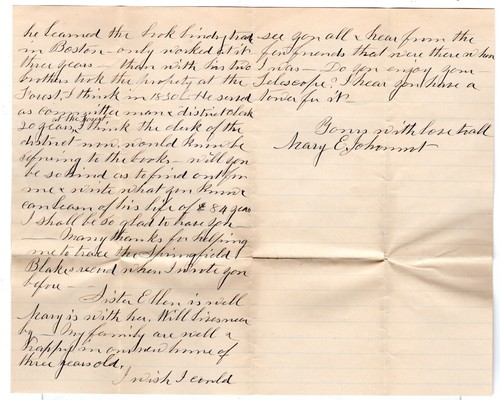 he learned the book bindry trade
in Boston - only worked at it
three years - then with his two
brothers took the property at the
Forest, I think in 1830 - He served
as committee man & district clerk
20 years, I think the clerk of the
at the Forest
district now, would know by
refering to the books - will you
be so kind as to find out for
me & write what you know
can learn of his life of 84 years
I shall be so glad to have you -
- Many thanks for helping
me to trace the Springfield
Blake record when I wrote you
before -
Sister Ellen is well
Mary is with her. Will lives near
by - My family are well &
happy in our new home of
three years old.
I wish I could
see you all & hear from the
few friends that were there when
I was - Do you enjoy your
Telescope? I hear you have a
tower for it -
Yours with love to all
Mary E.